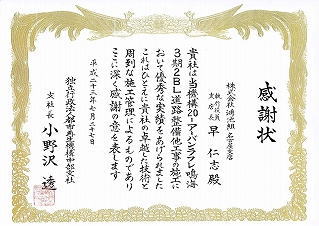 感謝状
株式会社鴻池組 名古屋支店
執行役員
支店長
早 仁志 殿
貴社は当機構20-アーバンラフレ鳴海
3期2BL道路整備他工事の施工に
おいて優秀な実績をあげられました
これはひとえに貴社の卓越した技術と
周到な施工管理によるものであり
ここに深く感謝の意を表します
平成二十三年七月二十七日
独立行政法人都市再生機構中部支社
支社長 小野沢 透